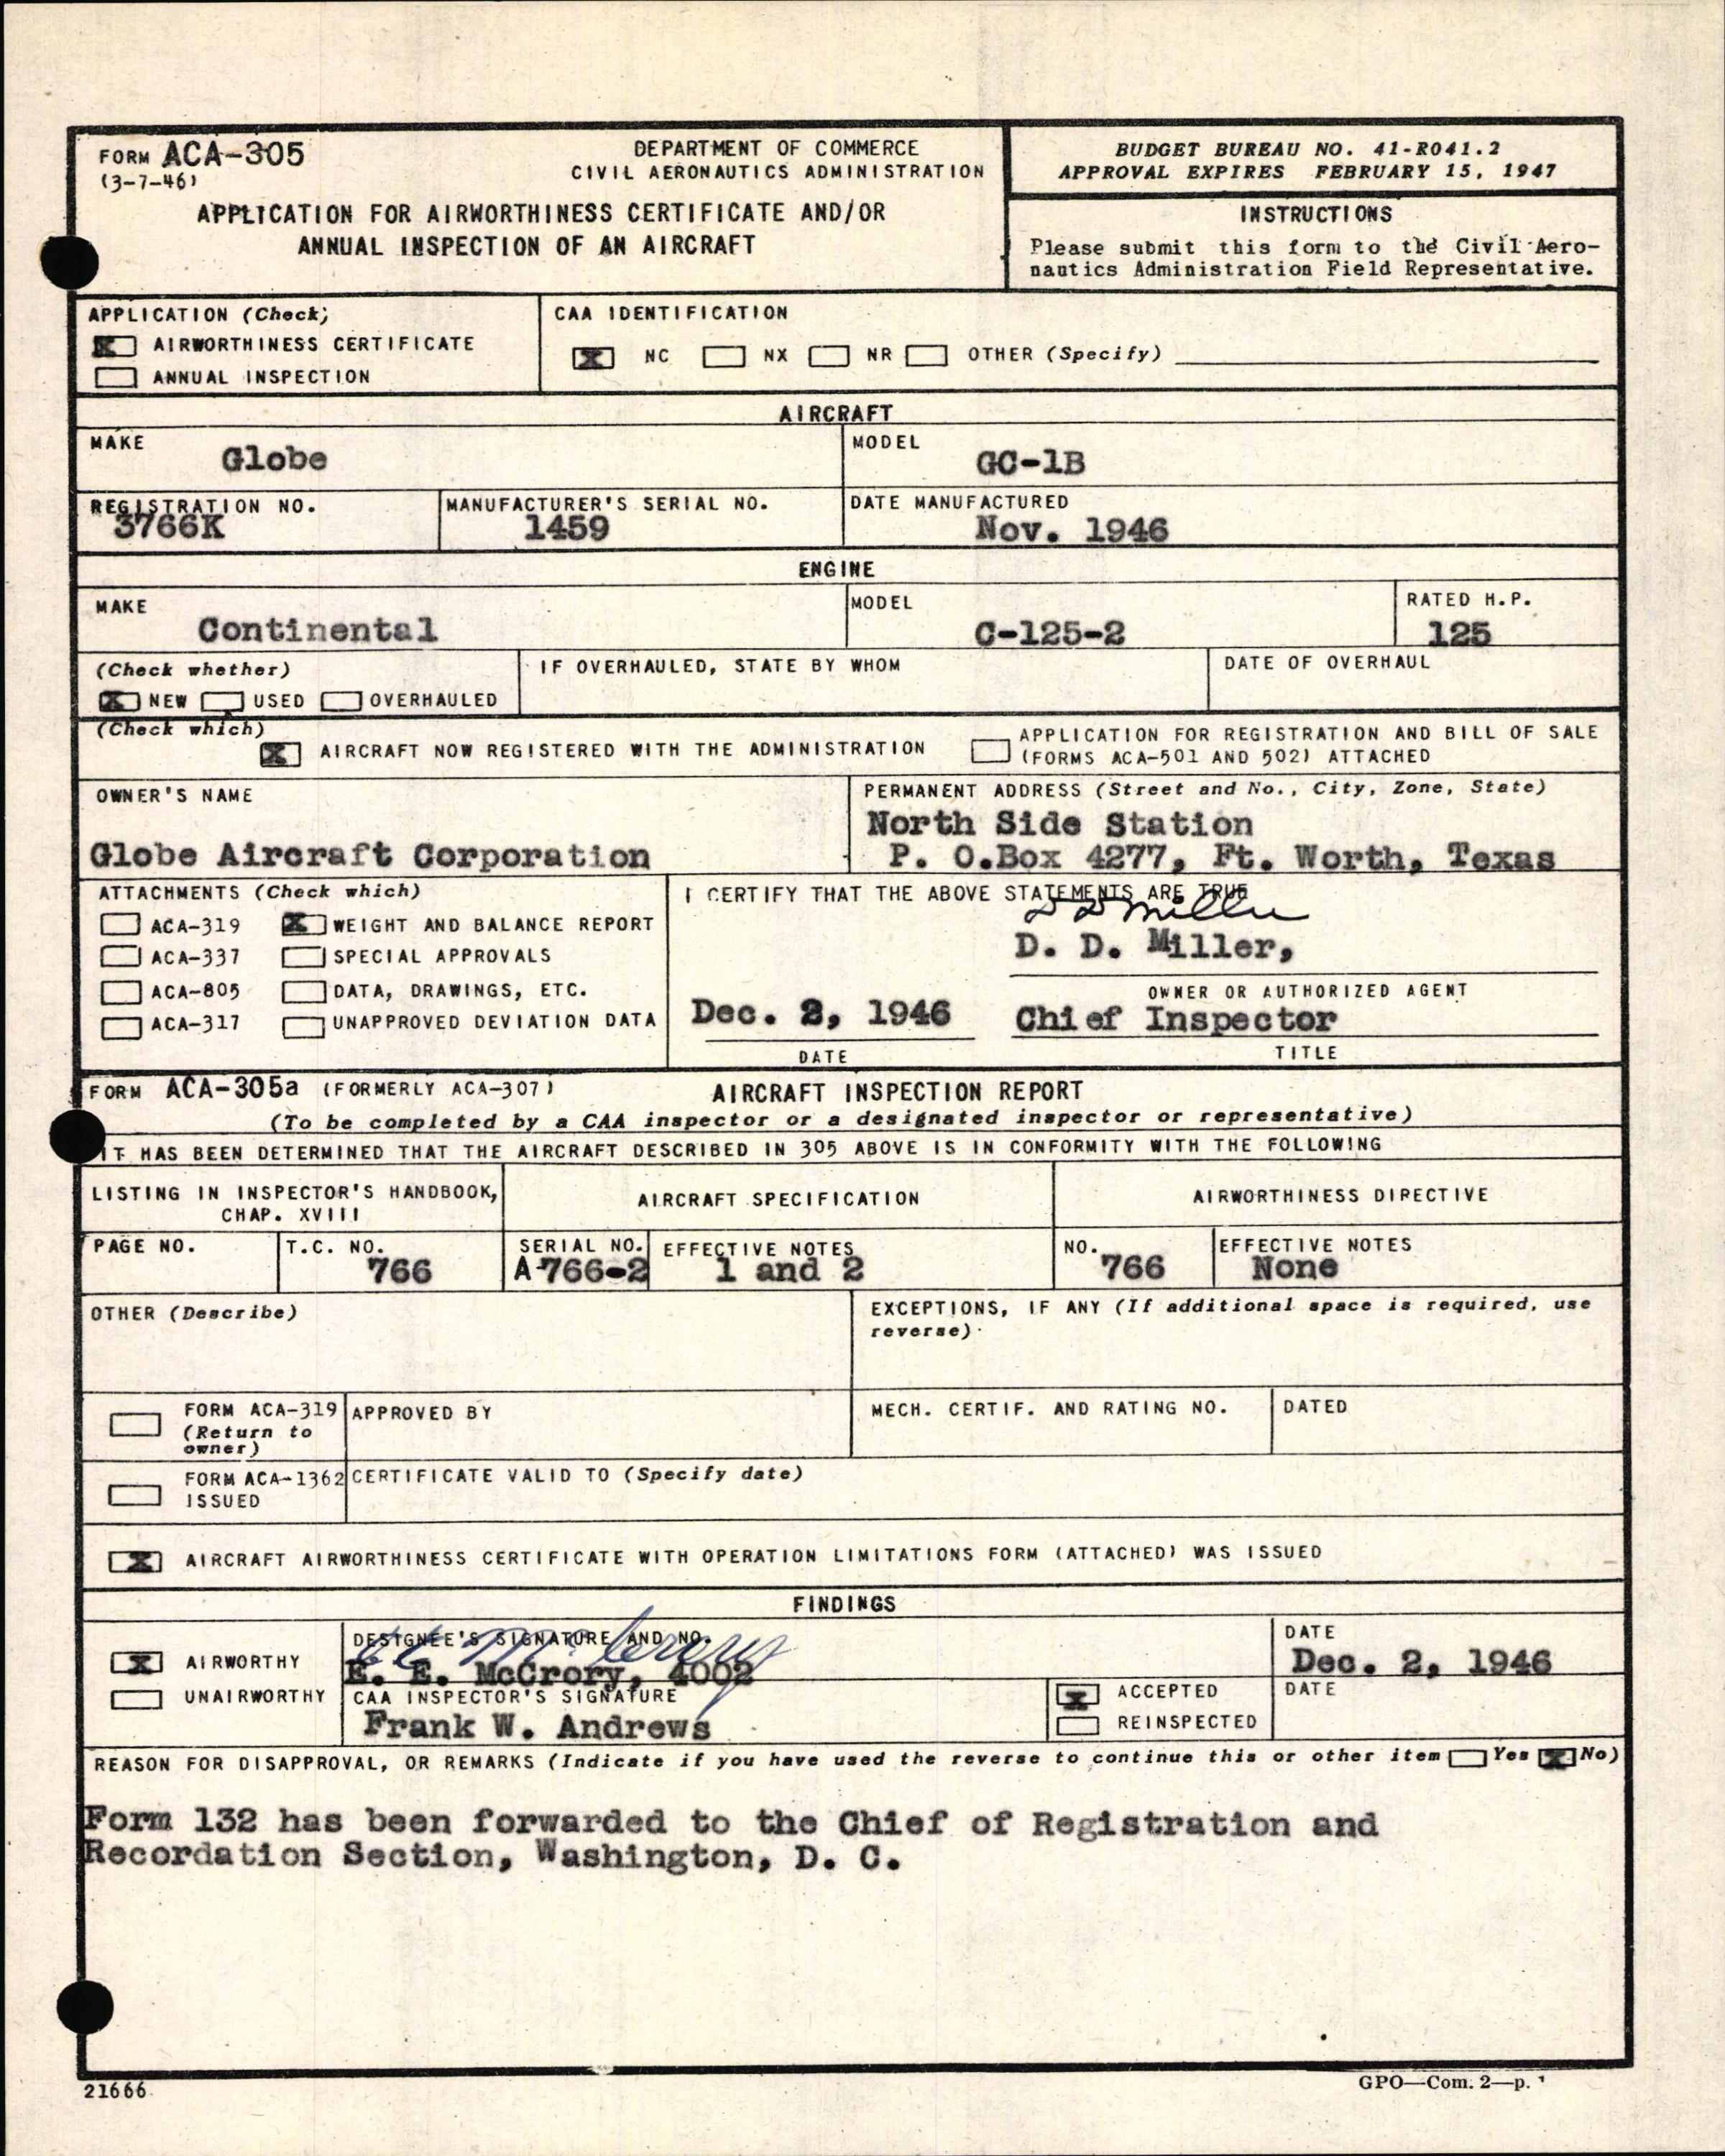 FORM ACA-305
(3-7-46)
DEPARTMENT OF COMMERCE
CIVIL AERONAUTICS ADMINISTRATION
APPLICATION FOR AIRWORTHINESS CERTIFICATE AND/OR
ANNUAL INSPECTION OF AN AIRCRAFT
BUDGET BUREAU NO. 41-R041.2
APPROVAL EXPIRES FEBRUARY 15, 1947
INSTRUCTIONS
Please submit this form to the Civil Aero-
nautics Administration Field Representative.
APPLICATION (Check)
X AIRWORTHINESS CERTIFICATE
ANNUAL INSPECTION
CAA IDENTIFICATION
X NC NX NR OTHER (Specify)
AIRCRAFT
MAKE
Globe
MODEL
GC-1B
REGISTRATION NO.
3766K
MANUFACTURER'S SERIAL NO.
1459
DATE MANUFACTURED
Nov. 1946
ENGINE
MAKE
Continental
MODEL
C-125-2
RATED H.P.
125
(Check whether)
X NEW USED OVERHAULED
IF OVERHAULED, STATE BY WHOM
DATE OF OVERHAUL
(Check which)
X AIRCRAFT NOW REGISTERED WITH THE ADMINISTRATION
APPLICATION FOR REGISTRATION AND BILL OF SALE
(FORMS ACA-501 AND 502) ATTACHED
OWNER'S NAME
Globe Aircraft Corporation
PERMANENT ADDRESS (Street and No., City, Zone, State)
North Side Station
P. O.Box 4277, Ft. Worth, Texas
ATTACHMENTS (Check which)
ACA-319 X WEIGHT AND BALANCE REPORT
ACA-337 SPECIAL APPROVALS
ACA-805 DATA, DRAWINGS, ETC.
ACA-317 UNAPPROVED DEVIATION DATA
I CERTIFY THAT THE ABOVE STATEMENTS ARE TRUE
D D Miller
D. D. Miller,
OWNER OR AUTHORIZED AGENT
Dec. 2, 1946 Chief Inspector
DATE TITLE
FORM ACA-305a (FORMERLY ACA-307) AIRCRAFT INSPECTION REPORT
(To be completed by a CAA inspector or a designated inspector or representative)
IT HAS BEEN DETERMINED THAT THE AIRCRAFT DESCRIBED IN 305 ABOVE IS IN CONFORMITY WITH THE FOLLOWING
LISTING IN INSPECTOR'S HANDBOOK,
CHAP. XVIII
AIRCRAFT SPECIFICATION
AIRWORTHINESS DIRECTIVE
PAGE NO.
T.C. NO.
766
SERIAL NO.
A-766-2
EFFECTIVE NOTES
1 and 2
NO.
766
EFFECTIVE NOTES
None
OTHER (Describe)
EXCEPTIONS, IF ANY (If additional space is required, use
reverse)
FORM ACA-319
(Return to
owner)
APPROVED BY
MECH. CERTIF. AND RATING NO.
DATED
FORM ACA-1362
ISSUED
CERTIFICATE VALID TO (Specify date)
X AIRCRAFT AIRWORTHINESS CERTIFICATE WITH OPERATION LIMITATIONS FORM (ATTACHED) WAS ISSUED
FINDINGS
X AIRWORTHY
UNAIRWORTHY
DESIGNEE'S SIGNATURE AND NO.
E E McCrory
E. E. McCrory, 4002
DATE
Dec. 2, 1946
CAA INSPECTOR'S SIGNATURE
Frank W. Andrews
X ACCEPTED
REINSPECTED
DATE
REASON FOR DISAPPROVAL, OR REMARKS (Indicate if you have used the reverse to continue this or other item Yes X No)
Form 132 has been forwarded to the Chief of Registration and
Recordation Section, Washington, D. C.
21666
GPO—Com. 2—p.